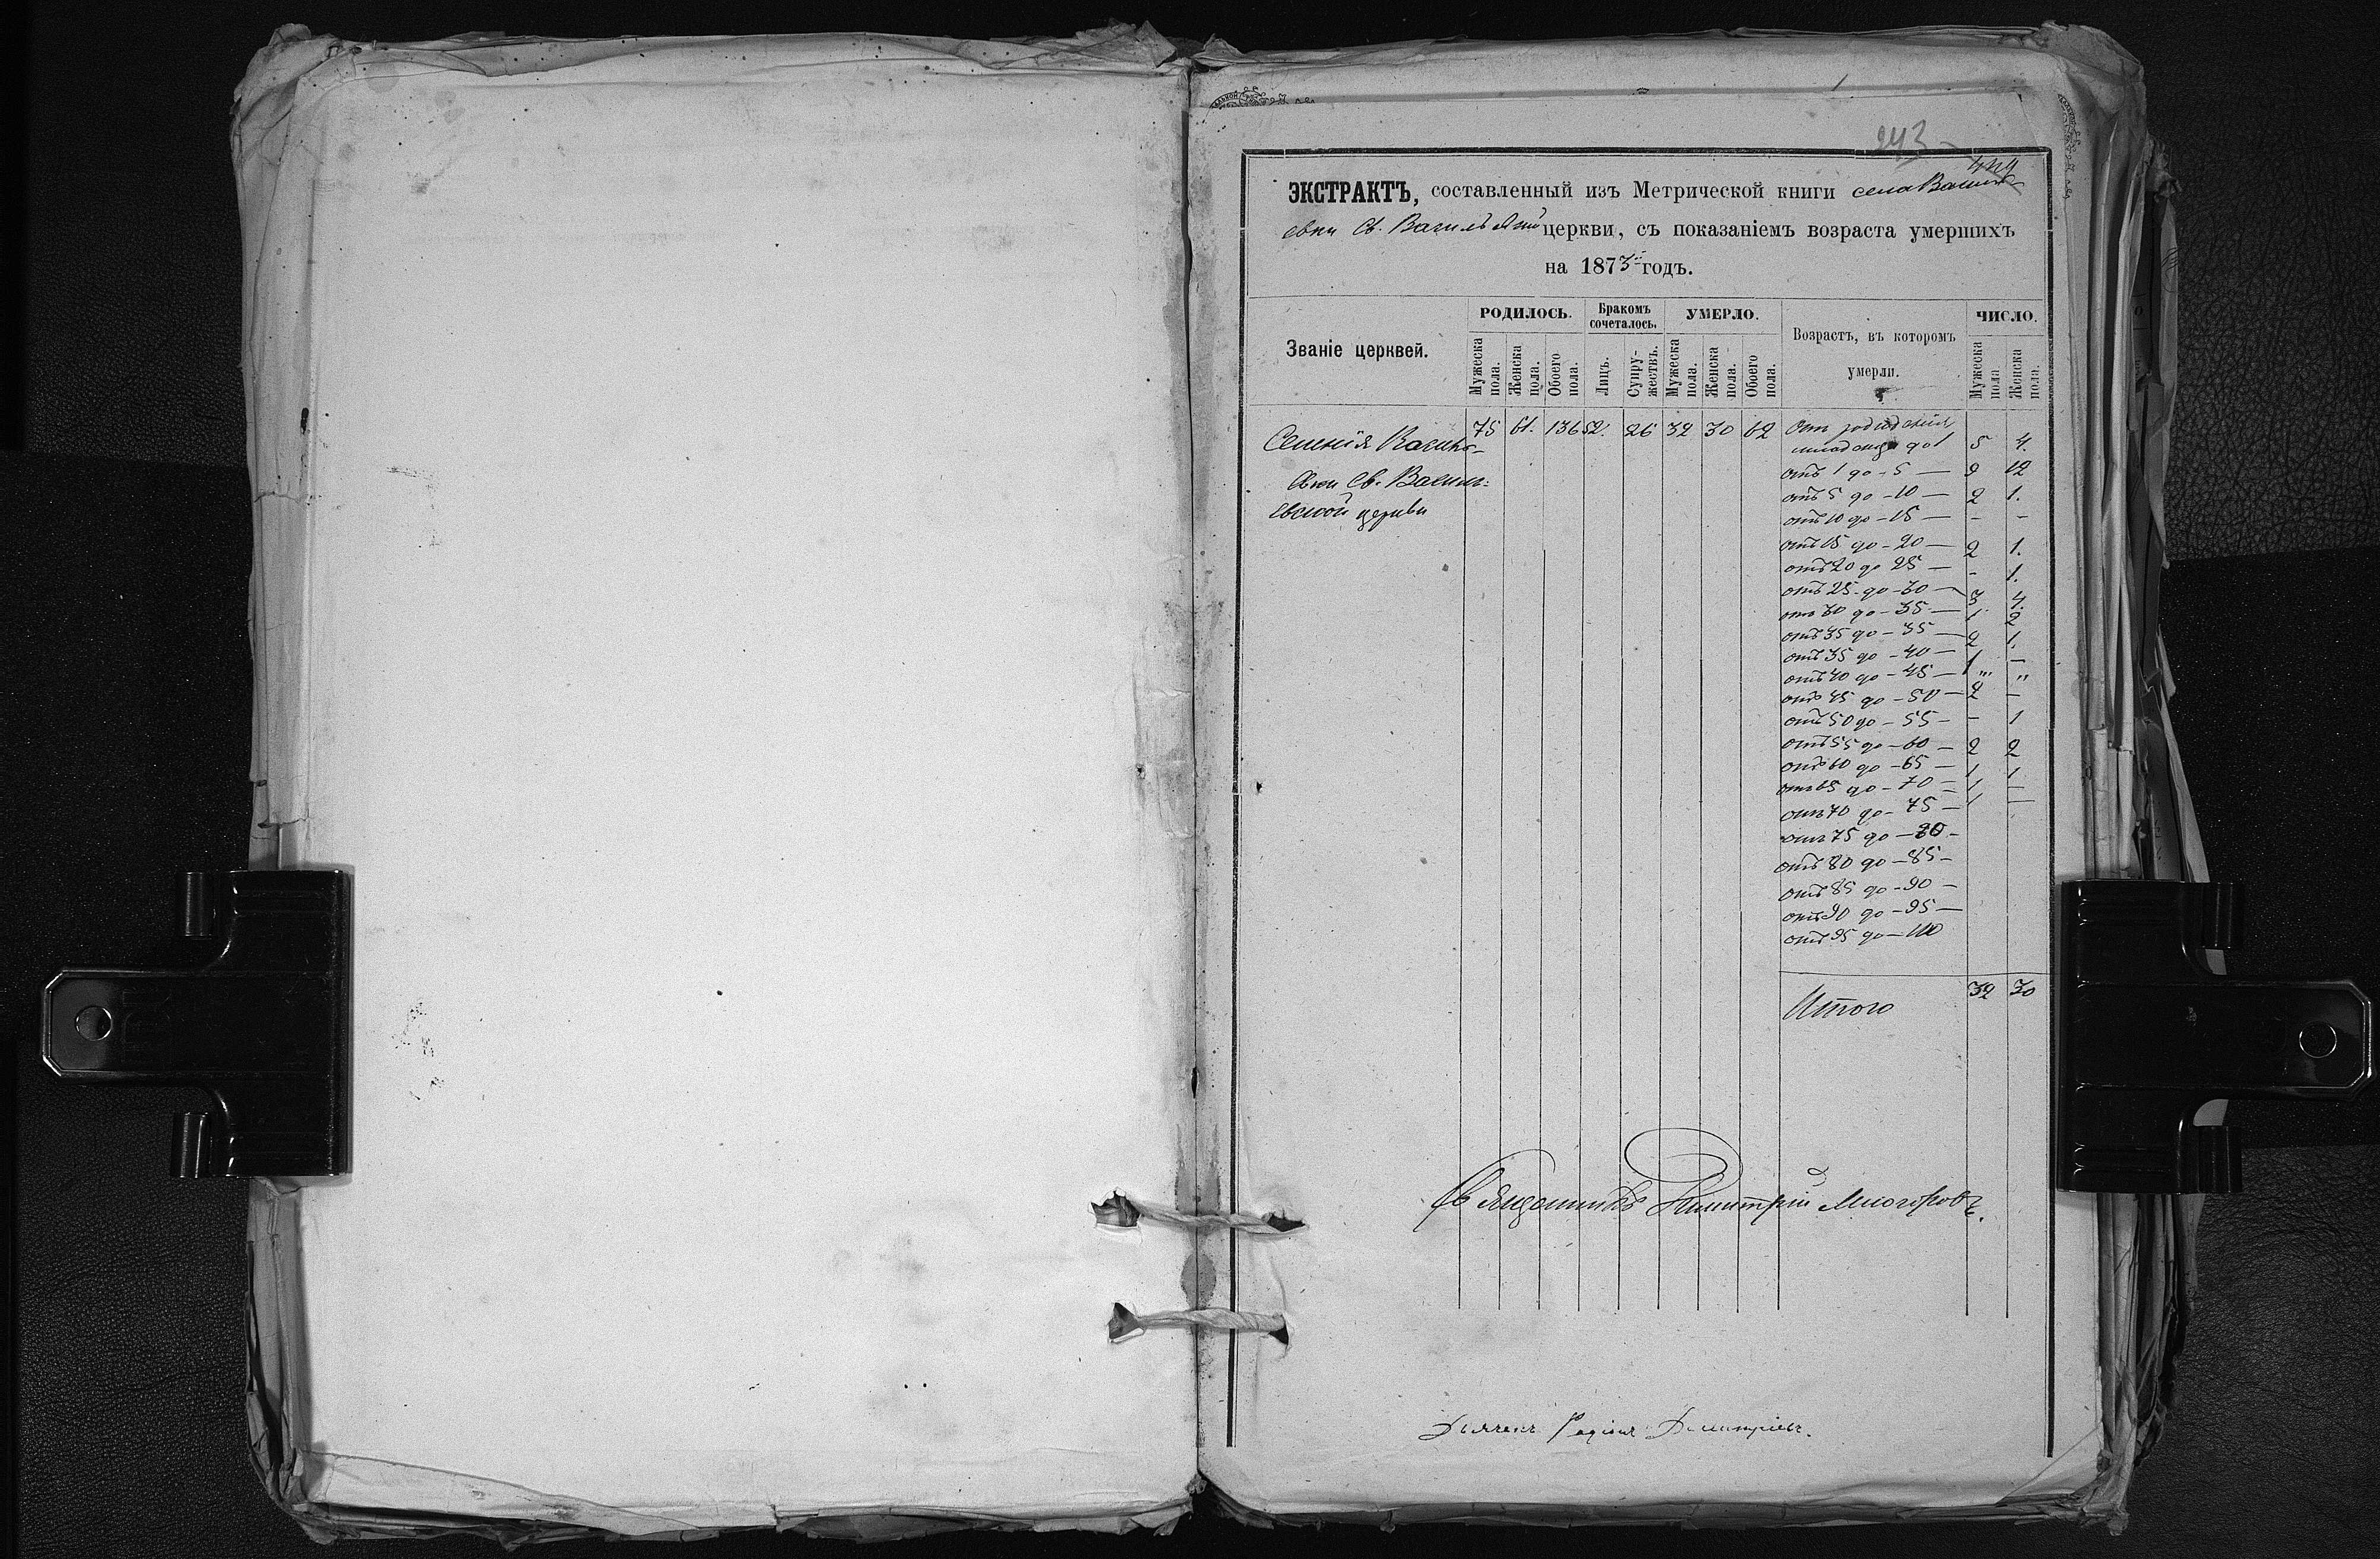 243
ЭКСТРАКТЪ, составленный изъ Метрической книги села Василь-
евки Св. Васильевской церкви, съ показаніемъ возраста умершихъ
на 1873 годъ.
Званіе церквей.
РОДИЛОСЬ.
Бракомъ сочеталось.
УМЕРЛО.
Возрастъ, въ которомъ умерли.
ЧИСЛО.
Мужеска пола.
Женска пола.
Обоего пола.
Лицъ.
Супружествъ.
Мужеска пола.
Женска пола.
Обоего пола.
Мужеска пола
Женска пола.
75 61. 136 52. 26 32 30 62
Селенія Василь-
евки Св. Василь-
евской церкви
От рожденія
младенца до 1 5 4.
отъ 1 до - 5 — 9 12
отъ 5 до - 10 — 2 1.
отъ 10 до - 15 — - -
отъ 15 до - 20 — 2 1.
отъ 20 до 25 — - 1.
отъ 25 - до - 30 — 3 4.
отъ 30 до - 35 — 1 2
отъ 35 до - 35 — 2 1.
отъ 35 до - 40 — 1 —
отъ 40 до - 45 — „ „
отъ 45 до - 50 — 2 —
отъ 50 до - 55 - - 1
отъ 55 до - 60 — 2 2
отъ 60 до - 65 — 1 1
отъ 65 до - 70 — 1 —
отъ 70 до - 75 — 1 —
отъ 75 до - 80 -
отъ 80 до - 85 -
отъ 85 до - 90 —
отъ 90 до - 95 —
отъ 95 до - 100
Итого 32 30
Священникъ Димитрій
Дьячекъ Родіонъ Димитріевъ.